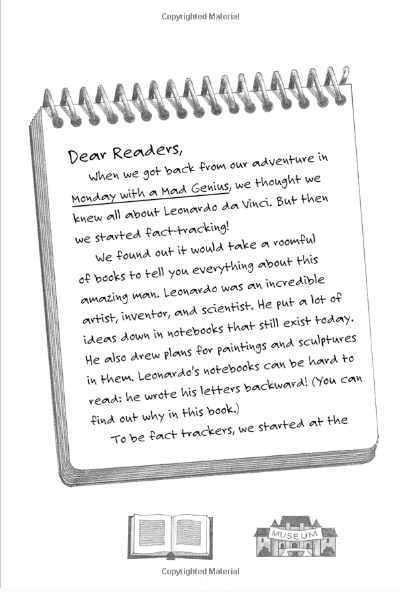 Copyrighted Material
Dear Readers,
When we got back from our adventure in
Monday with a Mad Genius, we thought we
knew all about Leonardo da Vinci. But then
we started fact-tracking!
We found out it would take a roomful
of books to tell you everything about this
amazing man. Leonardo was an incredible
artist, inventor, and scientist. He put a lot of
ideas down in notebooks that still exist today.
He also drew plans for paintings and sculptures
in them. Leonardo's notebooks can be hard to
read: he wrote his letters backward! (You can
find out why in this book.)
To be fact trackers, we started at the
MUSEUM
Copyrighted Material